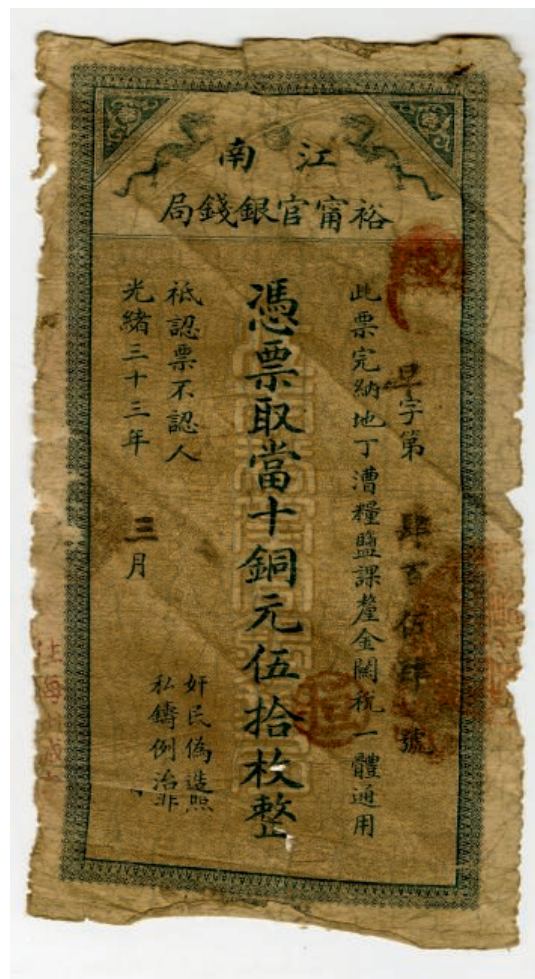 江南
裕甯官銀錢局
字第 肆百伍肆 號
此票完納地丁漕糧鹽課釐金關稅一體通用
憑票取當十銅元伍拾枚整
祇認票不認人
光緒三十三年 三月
奸民偽造照
私鑄例治罪